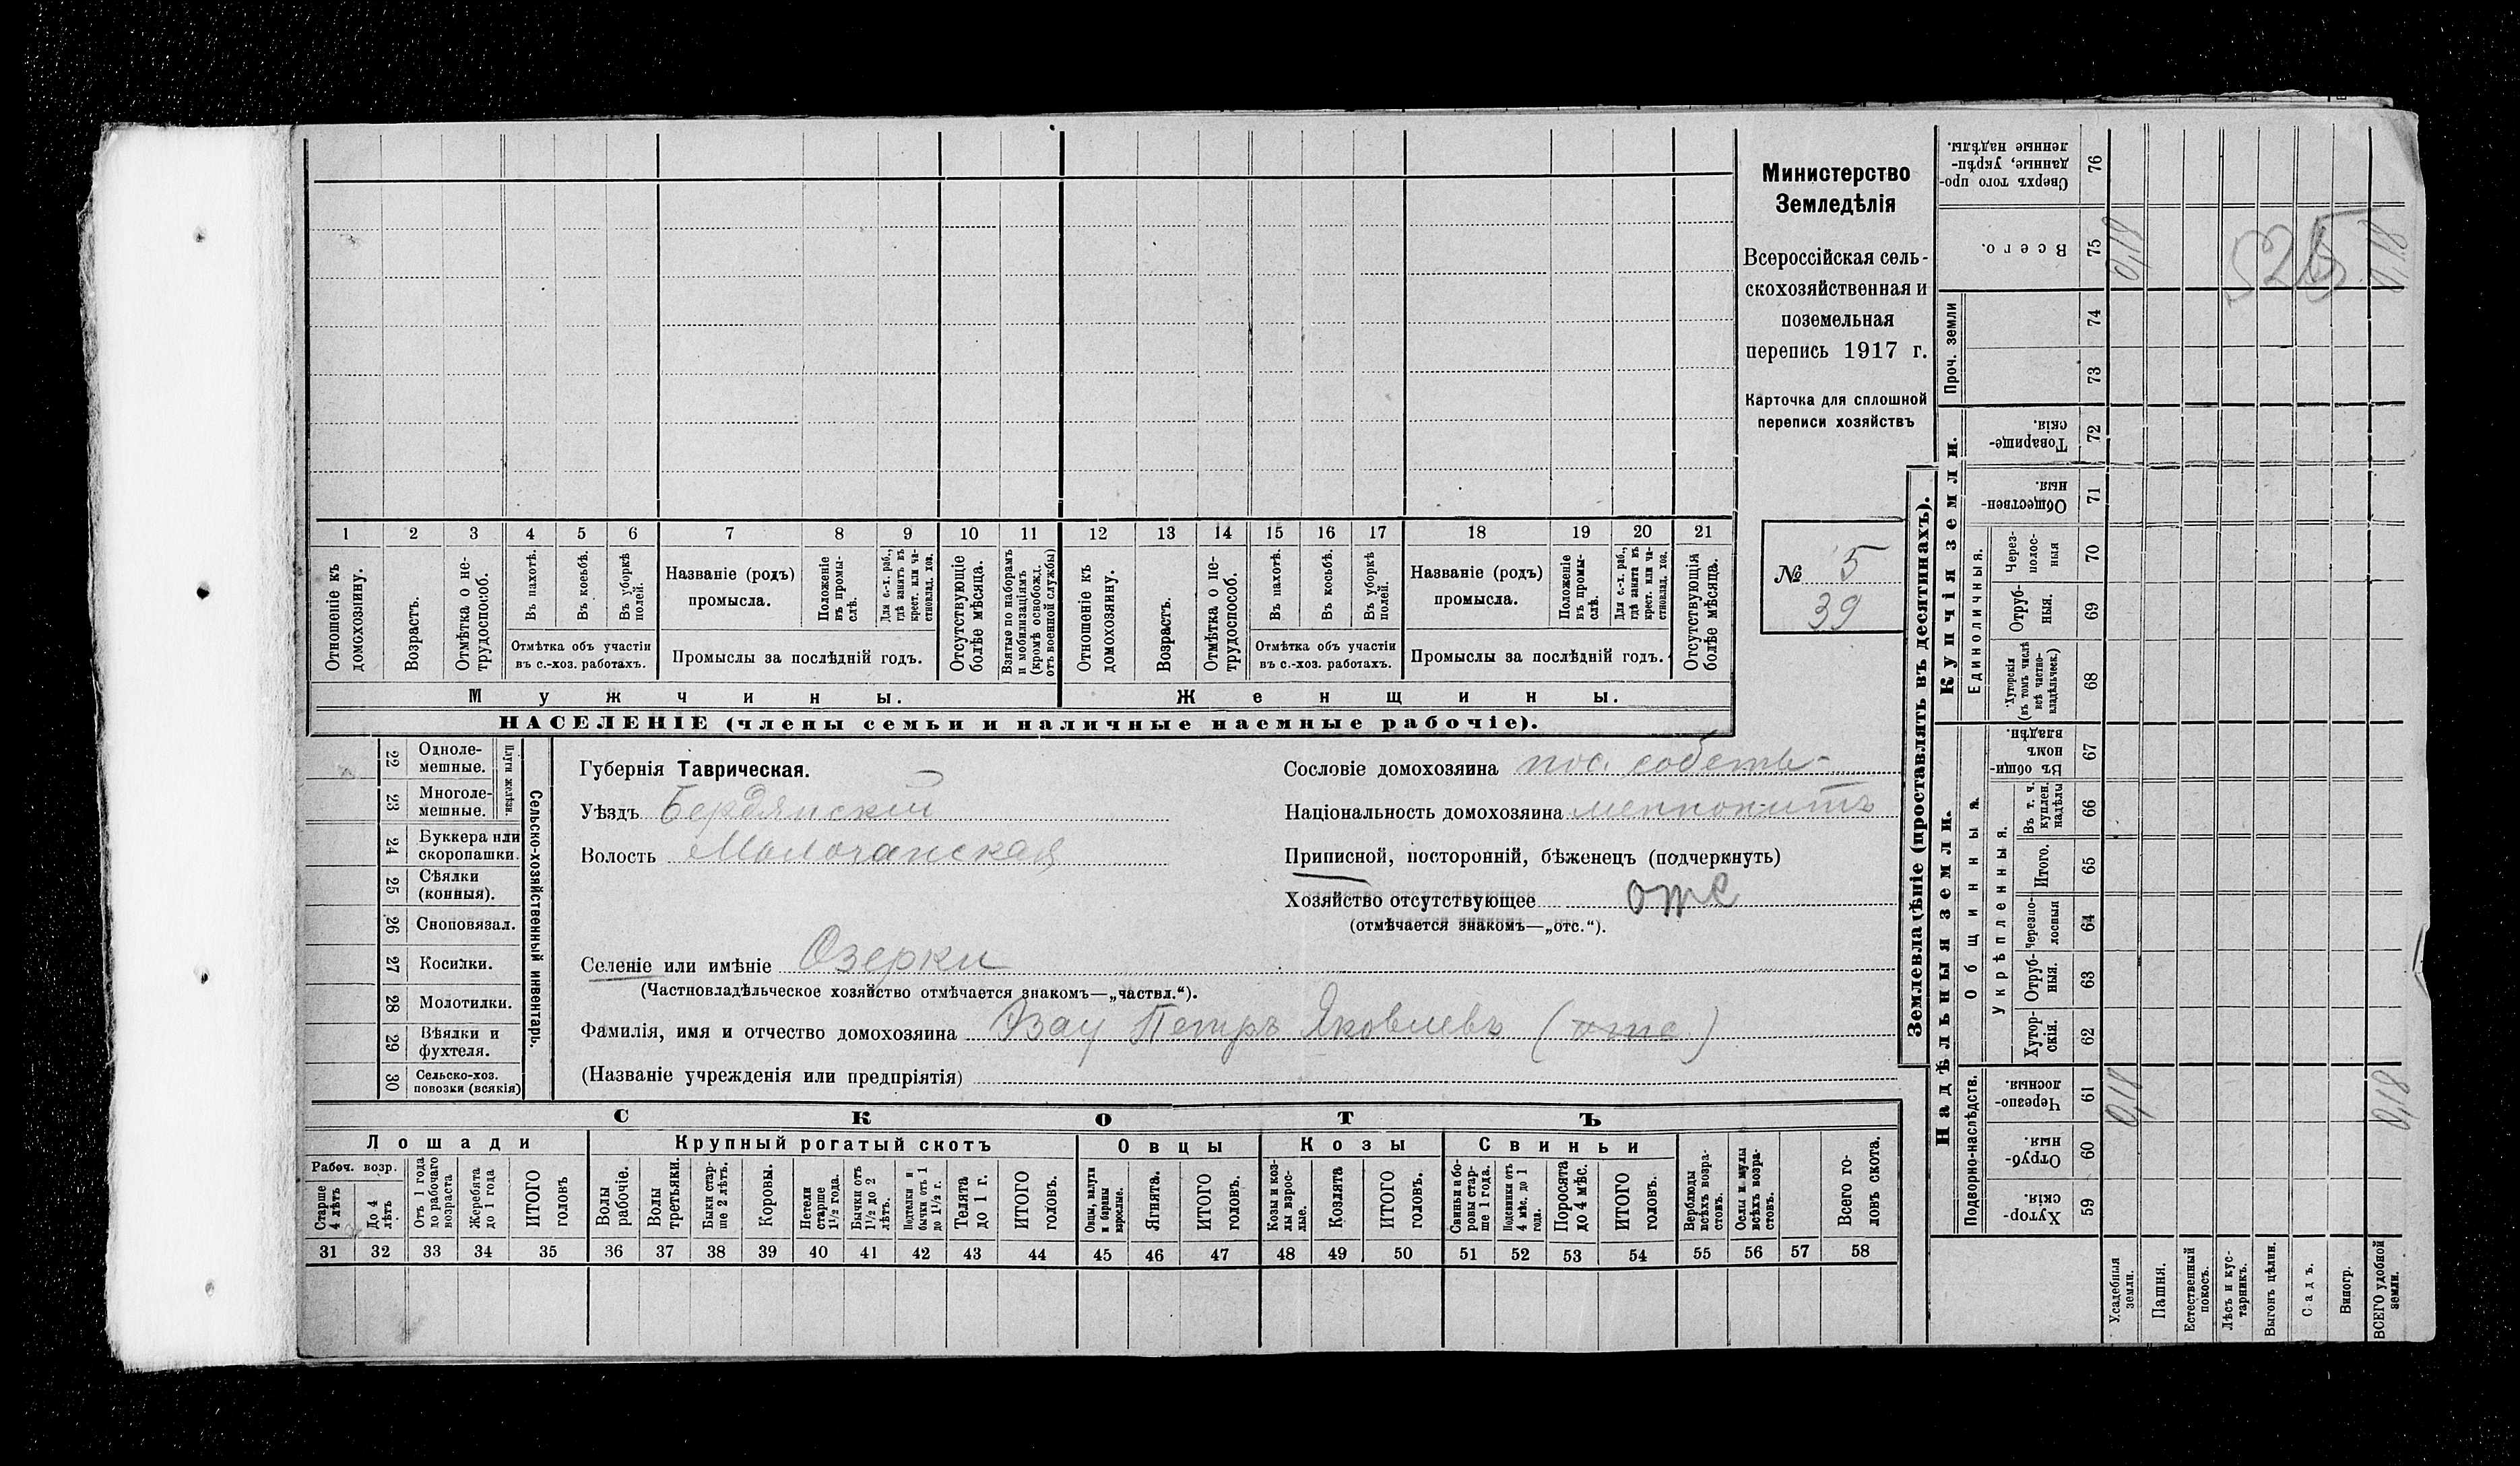 Министерство
Земледѣлія
Всероссійская сель-
скохозяйственная и
поземельная
перепись 1917 г.
Карточка для сплошной
переписи хозяйствъ
№ 5
39
1 2 3 4 5 6 7 8 9 10 11 12 13 14 15 16 17 18 19 20 21
Отношеніе къ домохозяину.
Возрастъ.
Отмѣтка о не-трудоспособ.
Въ пахотѣ.
Въ косьбѣ.
Въ уборкѣ полей.
Отмѣтка объ участіи
въ с.-хоз. работахъ.
Названіе (родъ)
промысла.
Положеніе въ промы-слѣ.
Для с.-х. раб., гдѣ занятъ въ крест. или ча-стновлад. хоз.
Промыслы за послѣдній годъ.
Отсутствующіе болѣе мѣсяца.
Взятые по наборамъ и мобилизаціямъ (кромѣ освобожд. отъ военной службы)
Отношеніе къ домохозяину.
Возрастъ.
Отмѣтка о не-трудоспособ.
Въ пахотѣ.
Въ косьбѣ.
Въ уборкѣ полей.
Отмѣтка объ участіи
въ с.-хоз. работахъ.
Названіе (родъ)
промысла.
Положеніе въ промы-слѣ.
Для с.-х. раб., гдѣ занята въ крест. или ча-стновлад. хоз.
Промыслы за послѣдній годъ.
Отсутствующія болѣе мѣсяца.
Мужчины.
Женщины.
НАСЕЛЕНІЕ (члены семьи и наличные наемные рабочіе).
22 Одноле-мешные.
23 Многоле-мешные.
Плуги желѣзн.
24 Буккера или скоропашки.
25 Сѣялки (конныя).
26 Сноповязал.
27 Косилки.
28 Молотилки.
29 Вѣялки и фухтеля.
30 Сельско-хоз. повозки (всякія)
Сельско-хозяйственный инвентарь.
Губернія Таврическая.
Уѣздъ Бердянскій
Волость Молочанская
Сословіе домохозяина пос. собств-
Національность домохозяина меннонитъ
Приписной, посторонній, бѣженецъ (подчеркнуть)
Хозяйство отсутствующее отс
(отмѣчается знакомъ—„отс.“).
Селеніе или имѣніе Озерки
(Частновладѣльческое хозяйство отмѣчается знакомъ—„частвл.“).
Фамилія, имя и отчество домохозяина Петръ Яковлевъ (отс)
(Названіе учрежденія или предпріятія)
СКОТЪ
Лошади
Крупный рогатый скотъ
Овцы
Козы
Свиньи
Рабоч. возр.
Старше 4 лѣтъ
До 4 лѣтъ
Отъ 1 года до рабочаго возраста
Жеребята до 1 года
ИТОГО головъ
Волы рабочіе.
Волы третьяки.
Быки стар-ше 2 лѣтъ.
Коровы.
Нетели старше 1½ года.
Бычки отъ 1½ до 2 лѣтъ.
Подтелки и бычки отъ 1 до 1½ г.
Телята до 1 г.
ИТОГО головъ.
Овцы, валухи и бараны взрослые.
Ягнята.
ИТОГО головъ.
Козы и коз-лы взрос-лые.
Козлята
ИТОГО головъ.
Свиньи и бо-ровы стар-ше 1 года.
Подсвинки отъ 4 мѣс. до 1 года.
Поросята до 4 мѣс.
ИТОГО головъ.
Верблюды всѣхъ возра-стовъ.
Ослы и мулы всѣхъ возра-стовъ.
Всего го-ловъ скота.
31 32 33 34 35 36 37 38 39 40 41 42 43 44 45 46 47 48 49 50 51 52 53 54 55 56 57 58
Землевладѣніе (проставлять въ десятинахъ).
Купчія земли.
Надѣльныя земли.
Проч. земли
Единоличныя.
Общинныя.
Укрѣпленныя.
Подворно-наслѣдств.
Сверхъ того про-данные, укрѣп-ленные надѣлы. 76
Всего. 75 0,18 0,18
525
74
73
Товарище-скія. 72
Обществен-ныя. 71
Через-полос-ныя 70
Отруб-ныя. 69
Хуторскія (въ томъ числѣ всѣ частно-владѣльческ.) 68
Въ общи-номъ владѣн. 67
Въ т. ч. куплен. надѣлы 66
Итого. 65
Черезпо-лосныя 64
Отруб-ныя. 63
Хутор-скія. 62
Черезпо-лосныя. 61 0,18 0,18
Отруб-ныя. 60
Хутор-скія. 59
Усадебныя земли.
Пашня.
Естественный покосъ.
Лѣсъ и кус-тарникъ.
Выгонъ цѣлин.
Садъ.
Виногр.
ВСЕГО удобной земли.